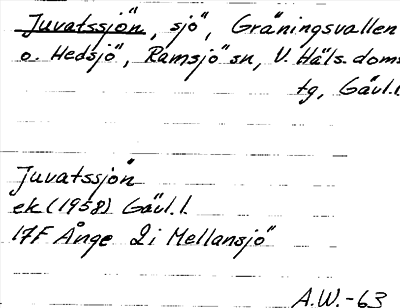 Juvatssjön, sjö, Gräningsvallen
o. Hedsjö, Ramsjö sn, V. Häls. doms
tg, Gävl.l
Juvatssjön
ek (1958) Gävl.l.
17F Ånge 2i Mellansjö
A.W.-63